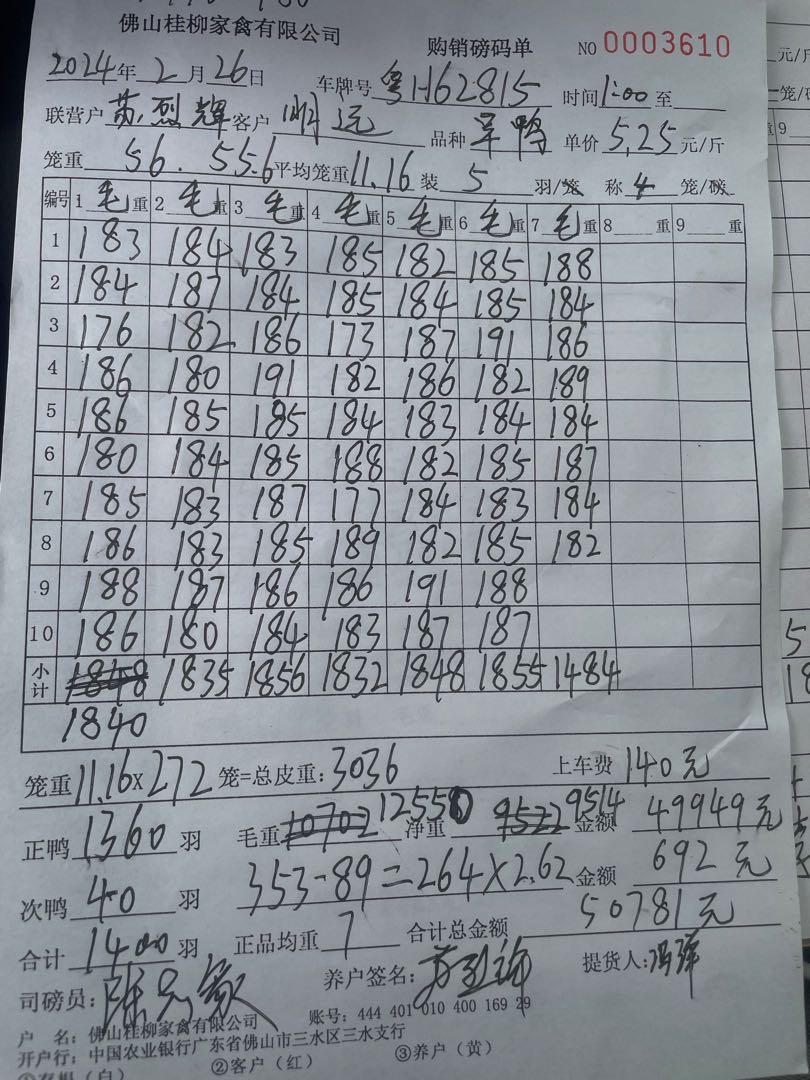 佛山桂柳家禽有限公司 购销磅码单 NO 0003610
2024年 2月 26日 车牌号 粤H62815 时间 1:00 至
联营户 苏烈辉 客户 明远 品种 单价 5,25 元/斤
笼重 56. 55.6 平均笼重 11.16 装 5 羽/笼 称 4 笼/磅
编号 1 毛 重 2 毛 重 3 毛 重 4 毛 重 5 毛 重 6 毛 重 7 毛 重 8 重 9 重
1 183 184 183 185 182 185 188
2 184 187 184 185 184 185 184
3 176 182 186 173 187 191 186
4 186 180 191 182 186 182 189
5 186 185 185 184 183 184 184
6 180 184 185 188 182 185 187
7 185 183 187 177 184 183 184
8 186 183 185 189 182 185 182
9 188 187 186 186 191 188
10 186 180 184 183 187 187
小计 1848 1835 1856 1832 1848 1855 1484
1840
笼重 11.16×272 笼=总皮重: 3036 上车费 140元
正鸭 1360 羽 毛重 10702 12550 净重 9522 9514 金额 49949元
次鸭 40 羽 353-89=264×2.62 金额 692元
合计 1400 羽 正品均重 7 合计总金额 50781元
司磅员: 养户签名: 苏烈辉 提货人:
户 名: 佛山桂柳家禽有限公司 账号: 444 401 010 400 169 29
开户行: 中国农业银行广东省佛山市三水区三水支行
①存根（白） ②客户（红） ③养户（黄）